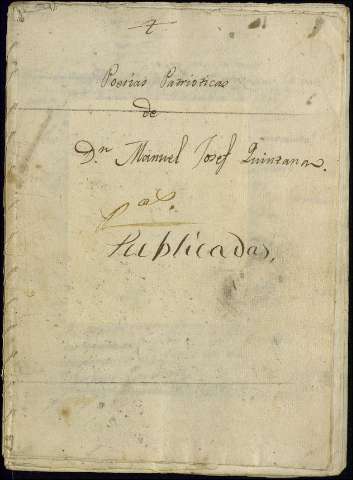 Poesías Patrioticas
de
D.ⁿ Manuel Josef Quintana.
Publicadas,